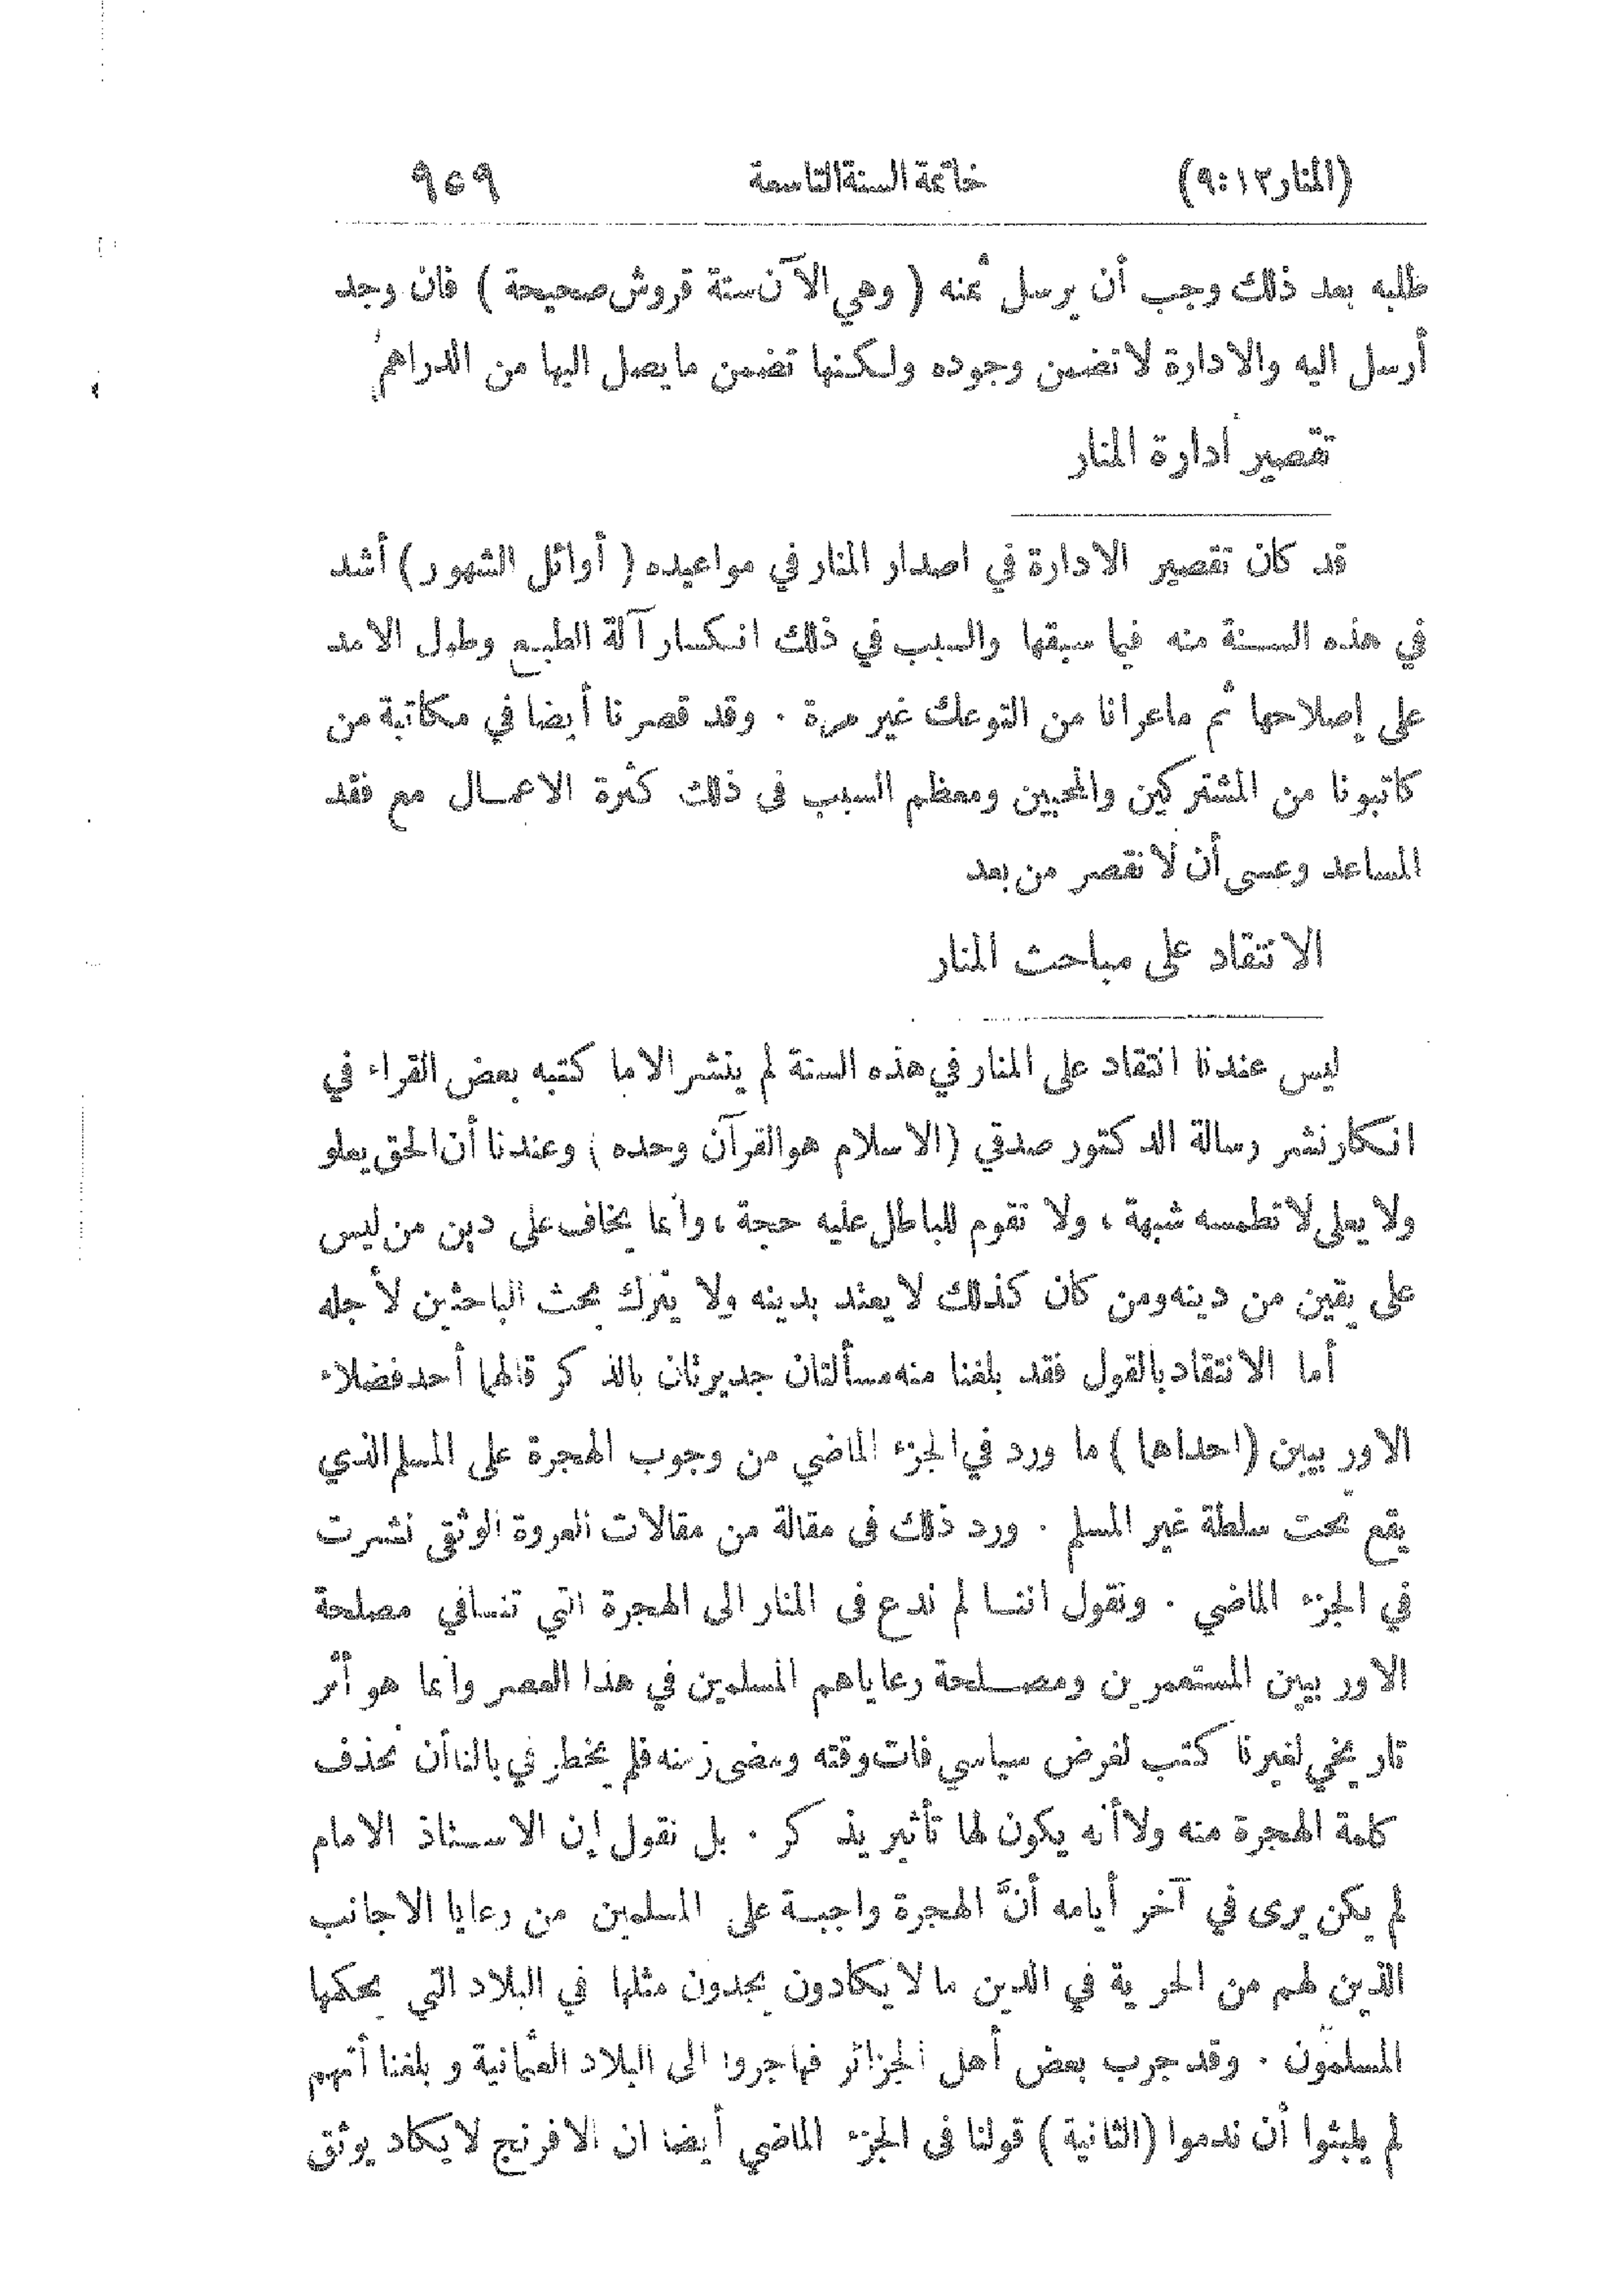 (المنار ١٢ : ٩) خاتمة السنة التاسعة ٩٤٩
طلبه بعد ذلك وجب أن يرسل ثمنه ( وهي الآن ستة قروش صحيحة ) فان وجد
أرسل اليه والادارة لا تضمن وجوده ولكنها تضمن ما يصل اليها من الدراهم
تقصير ادارة المنار
قد كان تقصير الادارة في اصدار المنار في مواعيده ( أوائل الشهور ) أشد
في هذه السنة منه فيما سبقها والسبب في ذلك انكسار آلة الطبع وطول الامد
على إصلاحها ثم ما عرانا من التوعك غير مرة . وقد قصرنا أيضا في مكاتبة من
كاتبونا من المشتركين والمحبين ومعظم السبب في ذلك كثرة الاعمال مع فقد
المساعد وعسى أن لا نقصر من بعد
الانتقاد على مباحث المنار
ليس عندنا انتقاد على المنار في هذه السنة لم ينشر الا ما كتبه بعض القراء في
انكار نشر رسالة الدكتور صدقي (الاسلام هو القرآن وحده ) وعندنا أن الحق يعلو
ولا يعلى لا تطمسه شبهة ، ولا تقوم للباطل عليه حجة ، وانما يخاف على دين من ليس
على يقين من دينه ومن كان كذلك لا يعتد بدينه ولا يترك بحث الباحثين لأجله
أما الانتقاد بالقول فقد بلغنا منه مسألتان جديرتان بالذكر قالهما أحد فضلاء
الاوربيين (احداهما ) ما ورد في الجزء الماضي من وجوب الهجرة على المسلم الذي
يقع تحت سلطة غير المسلم . ورد ذلك في مقالة من مقالات العروة الوثقى نشرت
في الجزء الماضي . ونقول اننا لم ندع في المنار الى الهجرة التي تنافي مصلحة
الاوربيين المستعمرين ومصلحة رعاياهم المسلمين في هذا العصر وانما هو أثر
تاريخي لغيرنا كتب لغرض سياسي فات وقته ومضى زمنه فلم يخطر في بالنا أن نحذف
كلمة الهجرة منه ولا أنه يكون لها تأثير يذكر . بل نقول إن الاستاذ الامام
لم يكن يرى في آخر أيامه أنَّ الهجرة واجبة على المسلمين من رعايا الاجانب
الذين لهم من الحرية في الدين ما لا يكادون يجدون مثلها في البلاد التي يحكمها
المسلمون . وقد جرب بعض أهل الجزائر فهاجروا الى البلاد العثمانية وبلغنا أنهم
لم يلبثوا أن ندموا (الثانية ) قولنا في الجزء الماضي أيضا ان الافرنج لا يكاد يوثق